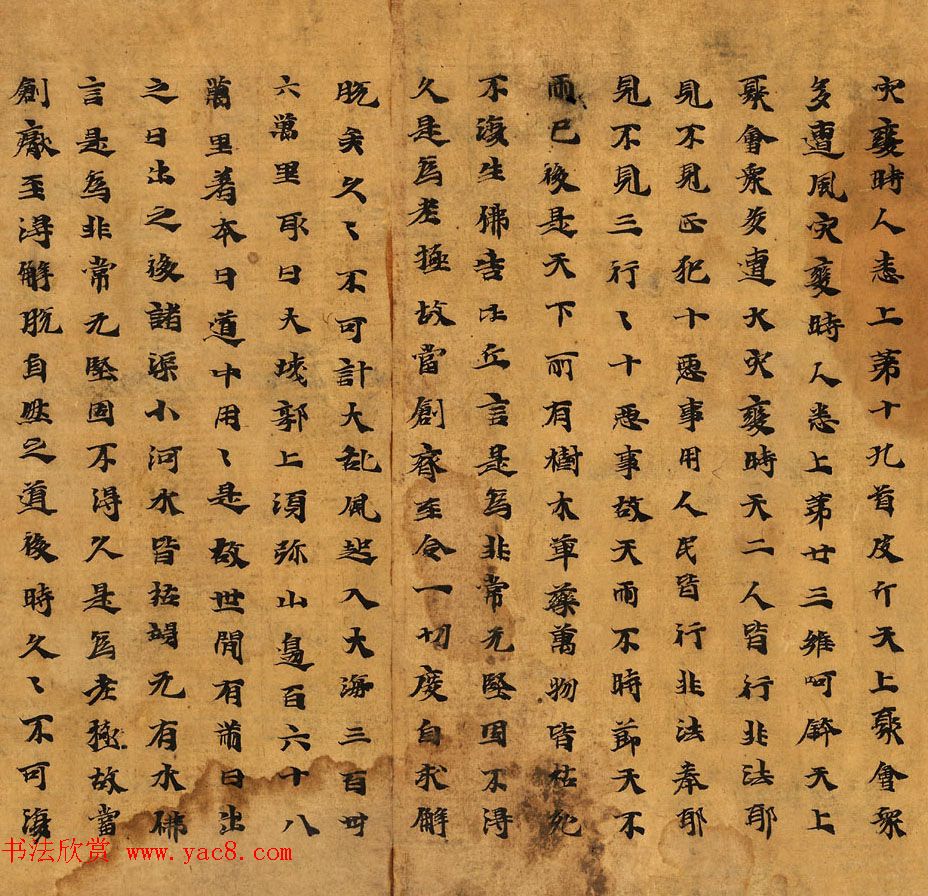 灾變時人悉上第十孔首皮斤天上聚會衆
多遭風灾變時人悉上第廿三維呵鉢天上
聚會衆多遭大灾變時天二人皆行非法耶
見不見正犯十惡事用人民皆行非法奉耶
見不見三行〻十惡事故天雨不時節天不
雨已後是天下所有樹木草藥萬物皆枯死
不復生佛告比丘言是為非常无堅固不得
久是為老極故當創齊至令一切度自求解
脫矣久〻不可計大亂風起入大海三百卅
六萬里取日大城郭上須弥山邊百六十八
萬里著本日道中用〻是故世間有兩日出
之日出之後諸渠小河水皆枯竭无有水佛
言是為非常无堅固不得久是為老極故當
創厭至得解脫自然之道後時久〻不可復
书法欣赏 www.yac8.com